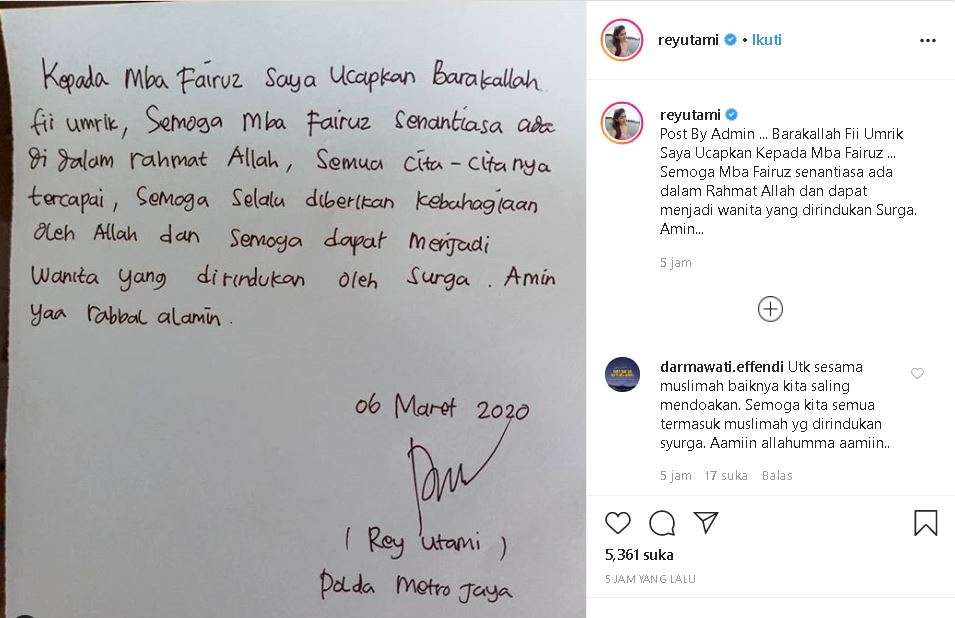 Kepada Mba Fairuz Saya Ucapkan Barakallah
fii umrik, Semoga Mba Fairuz Senantiasa ada
di dalam rahmat Allah, Semua Cita-Citanya
tercapai, Semoga Selalu diberikan kebahagiaan
Oleh Allah dan Semoga dapat Menjadi
Wanita yang dirindukan oleh Surga. Amin
yaa rabbal alamin.
06 Maret 2020
(Rey Utami)
Polda Metro Jaya
reyutami • Ikuti
reyutami
Post By Admin ... Barakallah Fii Umrik
Saya Ucapkan Kepada Mba Fairuz ...
Semoga Mba Fairuz senantiasa ada
dalam Rahmat Allah dan dapat
menjadi wanita yang dirindukan Surga.
Amin...
5 jam
darmawati.effendi Utk sesama
muslimah baiknya kita saling
mendoakan. Semoga kita semua
termasuk muslimah yg dirindukan
syurga. Aamiin allahumma aamiin..
5 jam 17 suka Balas
5,361 suka
5 JAM YANG LALU